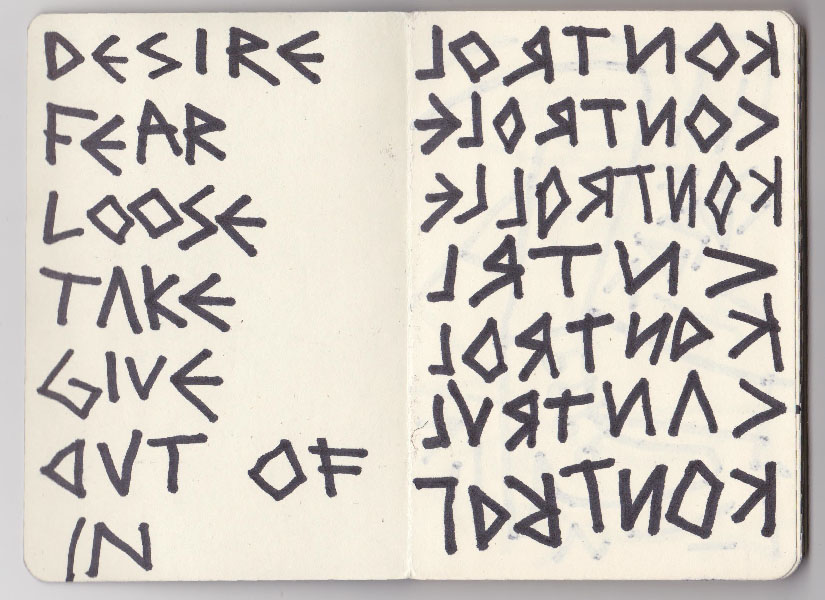 DESIRE
FEAR
LOOSE
TAKE
GIVE
OUT OF
IN
KONTROL
CONTROLE
KONTROLLE
CNTRL
KONTROL
CANTRUL
KONTROL